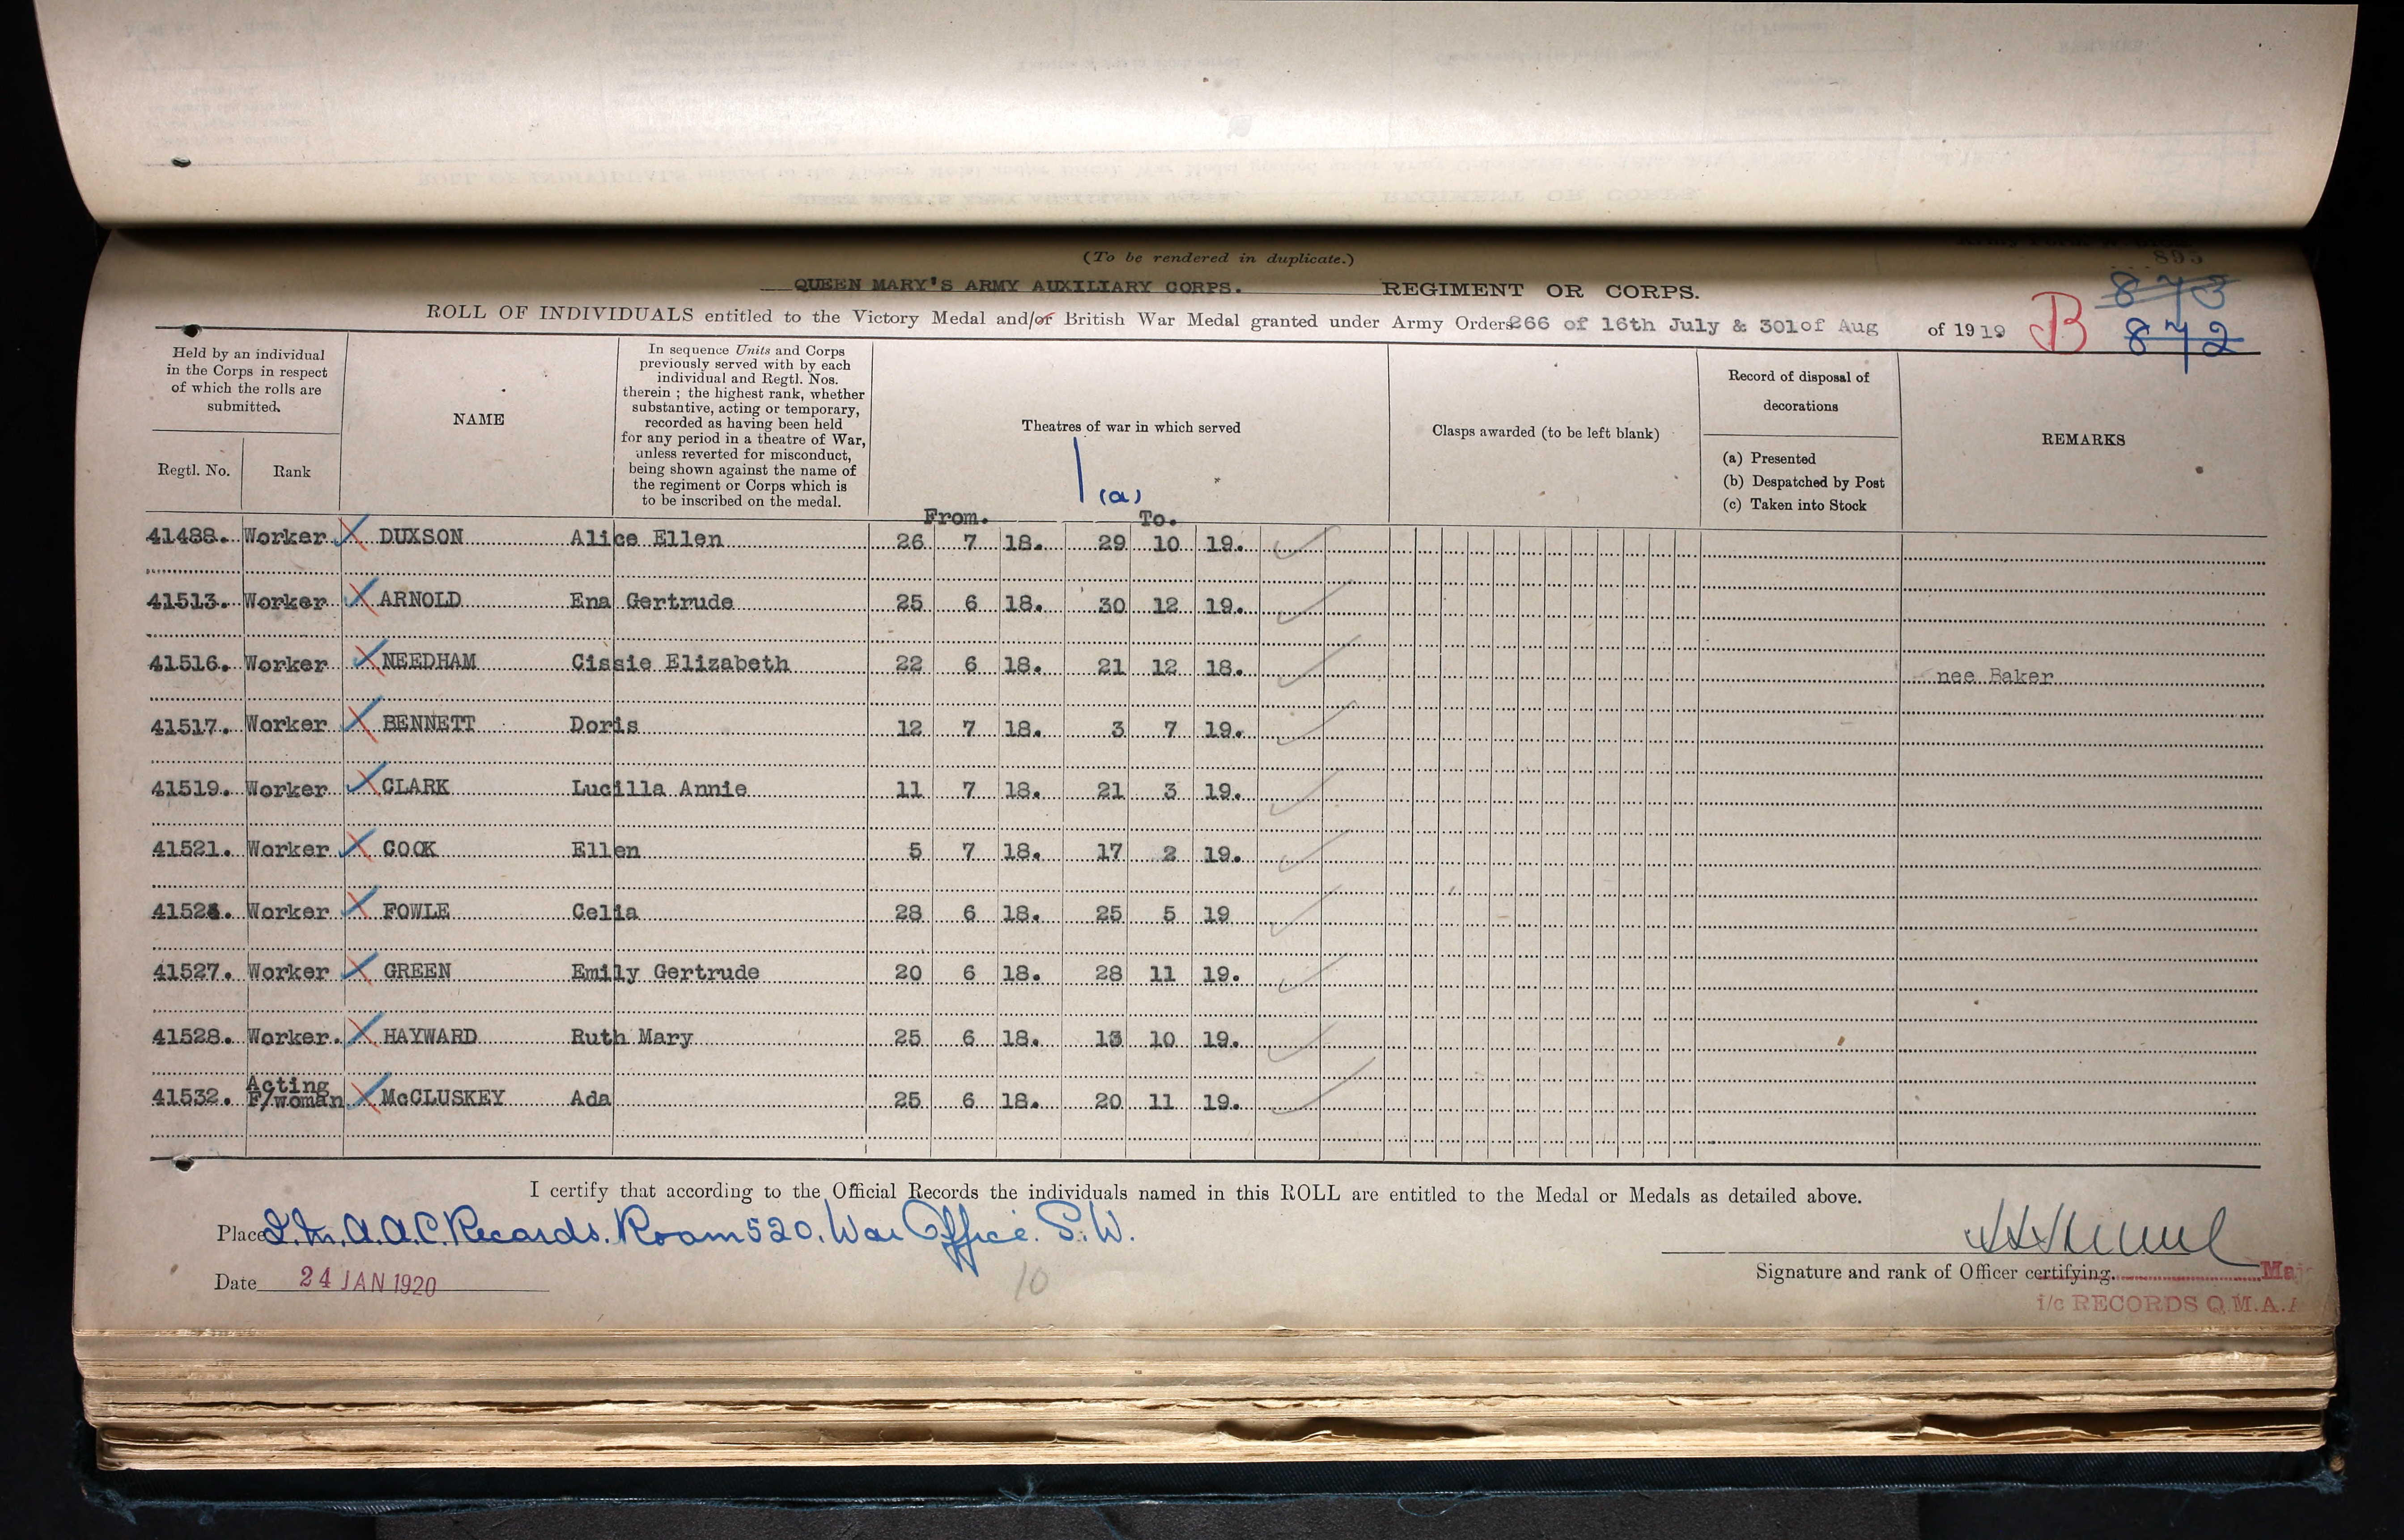 (To be rendered in duplicate.)
895
QUEEN MARY'S ARMY AUXILIARY CORPS. REGIMENT OR CORPS.
873
ROLL OF INDIVIDUALS entitled to the Victory Medal and/or British War Medal granted under Army Orders 266 of 16th July & 301 of Aug of 1919
B 872
Held by an individual
in the Corps in respect
of which the rolls are
submitted.
Regtl. No. Rank
NAME
In sequence Units and Corps
previously served with by each
individual and Regtl. Nos.
therein ; the highest rank, whether
substantive, acting or temporary,
recorded as having been held
for any period in a theatre of War,
unless reverted for misconduct,
being shown against the name of
the regiment or Corps which is
to be inscribed on the medal.
Theatres of war in which served
1 (a)
From. To.
Clasps awarded (to be left blank)
Record of disposal of
decorations
(a) Presented
(b) Despatched by Post
(c) Taken into Stock
REMARKS
41488. Worker X DUXSON Alice Ellen 26 7 18. 29 10 19.
41513. Worker X ARNOLD Ena Gertrude 25 6 18. 30 12 19.
41516. Worker X NEEDHAM Cissie Elizabeth 22 6 18. 21 12 18. nee Baker
41517. Worker X BENNETT Doris 12 7 18. 3 7 19.
41519. Worker X CLARK Lucilla Annie 11 7 18. 21 3 19.
41521. Worker X COOK Ellen 5 7 18. 17 2 19.
Worker X FOWLE Celia 28 6 18. 25 5 19
41527. Worker X GREEN Emily Gertrude 20 6 18. 28 11 19.
41528. Worker. X HAYWARD Ruth Mary 25 6 18. 13 10 19.
41532. Acting F/woman X McCLUSKEY Ada 25 6 18. 20 11 19.
I certify that according to the Official Records the individuals named in this ROLL are entitled to the Medal or Medals as detailed above.
Place Q.M.A.A.C. Records. Room 520. War Office. S.W.
Date 24 JAN 1920
10
Signature and rank of Officer certifying. Maj
i/c RECORDS Q.M.A.A